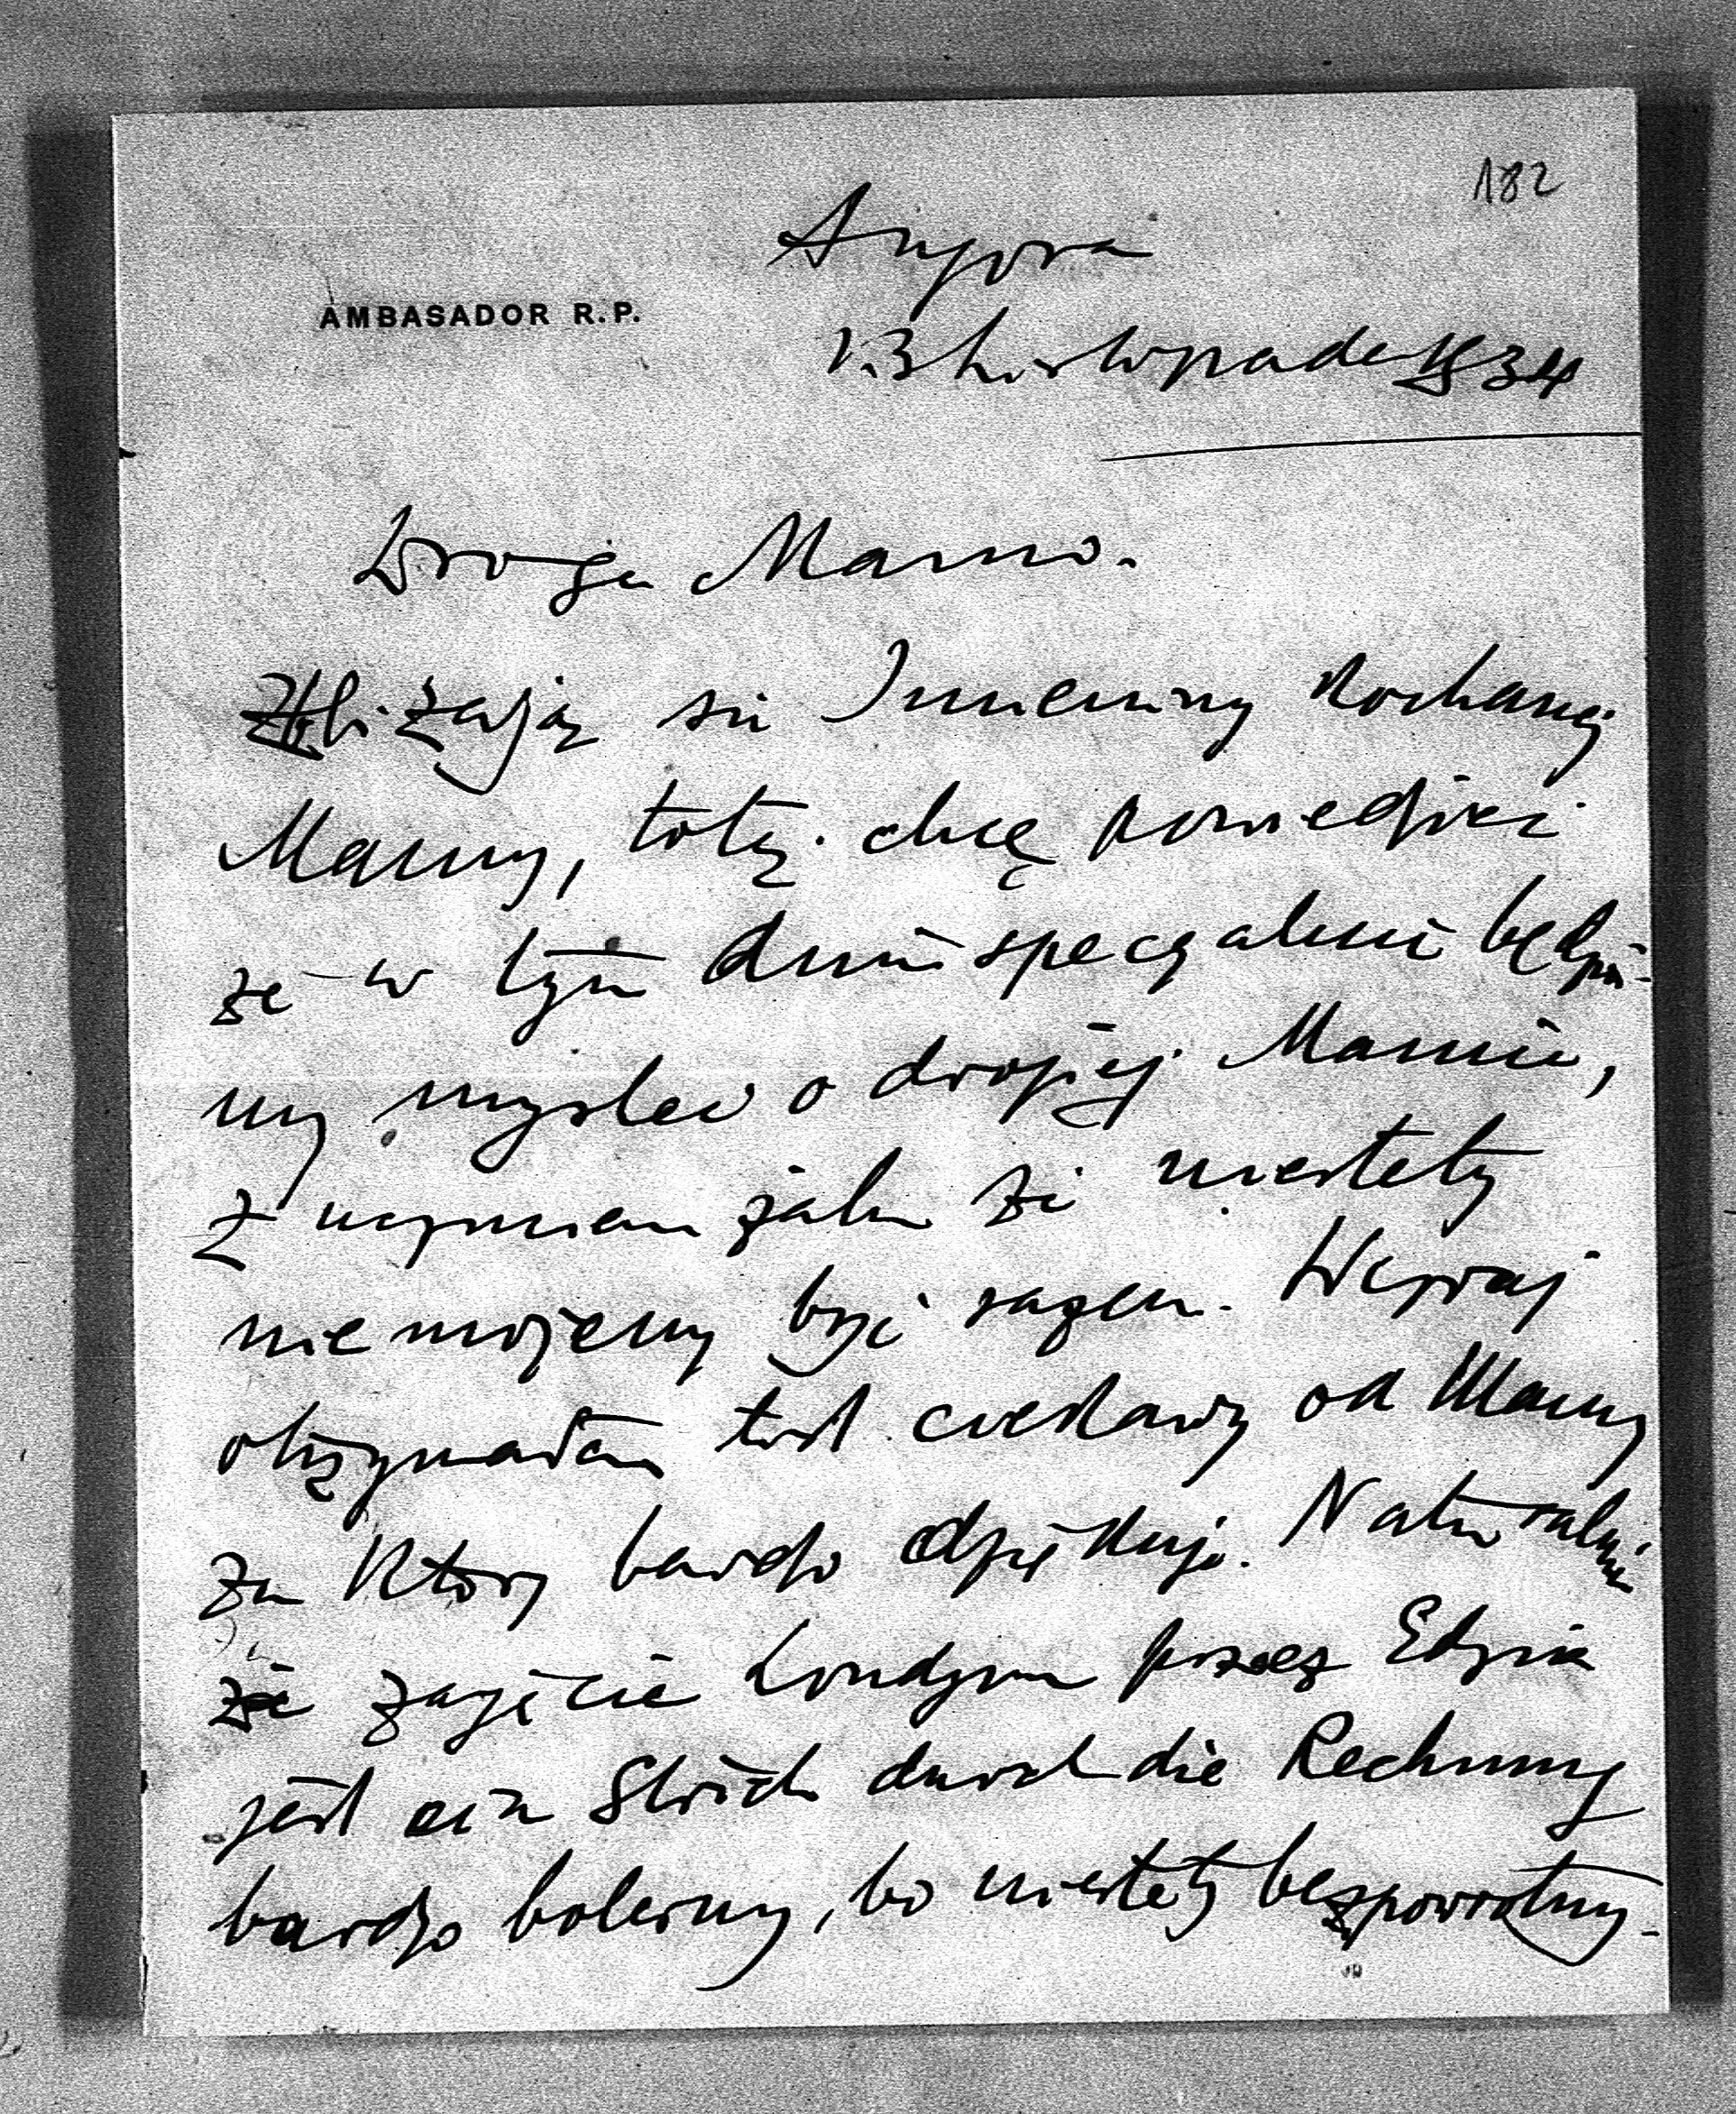 182
Angora
AMBASADOR R.P.
13 Listopada 1934
Droga Mamo.
Zbliżają się Imieniny Kochanej
Mamy, toteż chcę powiedzieć
że w tym dniu specyalnie będzie-
my myśleć o drogiej Mamie,
z uczuciem żalu że niestety
nie możemy być razem. Wczoraj
otrzymałam list ciekawy od Mamy
za który bardzo dziękuję. Naturalnie
że zajęcie Londynu przez Edzia
jest ein Strich durch die Rechnung
bardzo bolesny, bo niestety bezpowrotny.